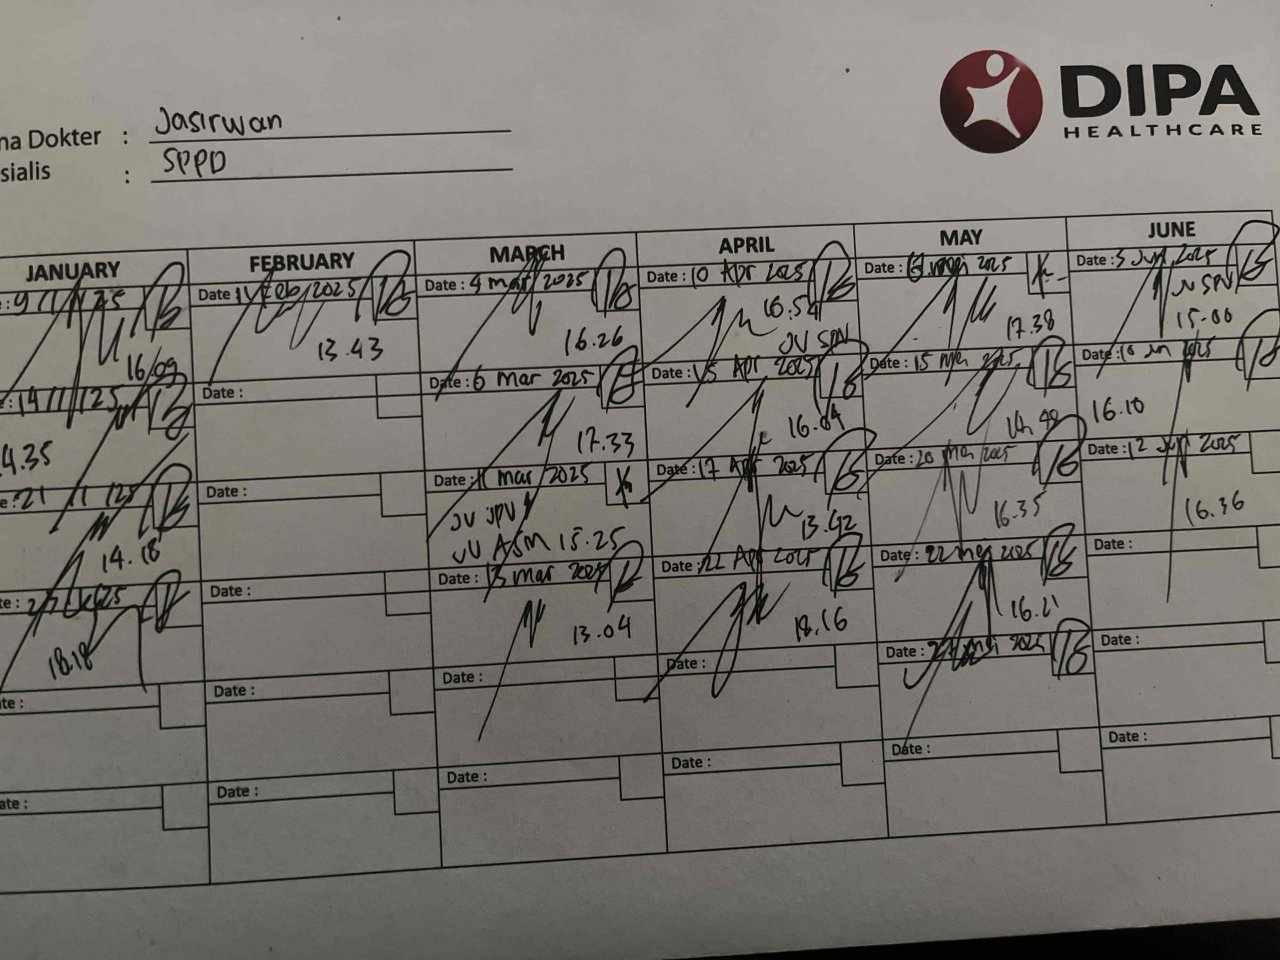 DIPA
HEALTHCARE
na Dokter : Jasirwan
sialis : SPPD
JANUARY
FEBRUARY
MARCH
APRIL
MAY
JUNE
16/09
14/1/25
4.35
21/1/25
14.18
18.18
ate :
ate :
Date : Feb 2025
13.43
Date :
Date :
Date :
Date :
Date :
Date : 4 mar 2025
16.26
Date : 6 Mar 2025
17.33
Date : 11 mar 2025
JV JPV
JV ASM 15.25
Date : 13 mar 2025
13.04
Date :
Date :
Date : 10 Apr 2025
16.54
JV SPN
Date : 15 Apr 2025
16.04
Date : 17 Apr 2025
13.42
Date : 22 Apr 2025
18.16
Date :
Date :
Date : 2025
17.38
Date : 15 Mei 2025
Date : 20 Mei 2025
16.35
Date : 22 Mei 2025
16.21
Date : 27 Mei 2025
Date :
Date : 3 Jun 2025
JV SPN
15.00
Date : 10 Jun 2025
16.10
Date : 12 Jun 2025
16.36
Date :
Date :
Date :